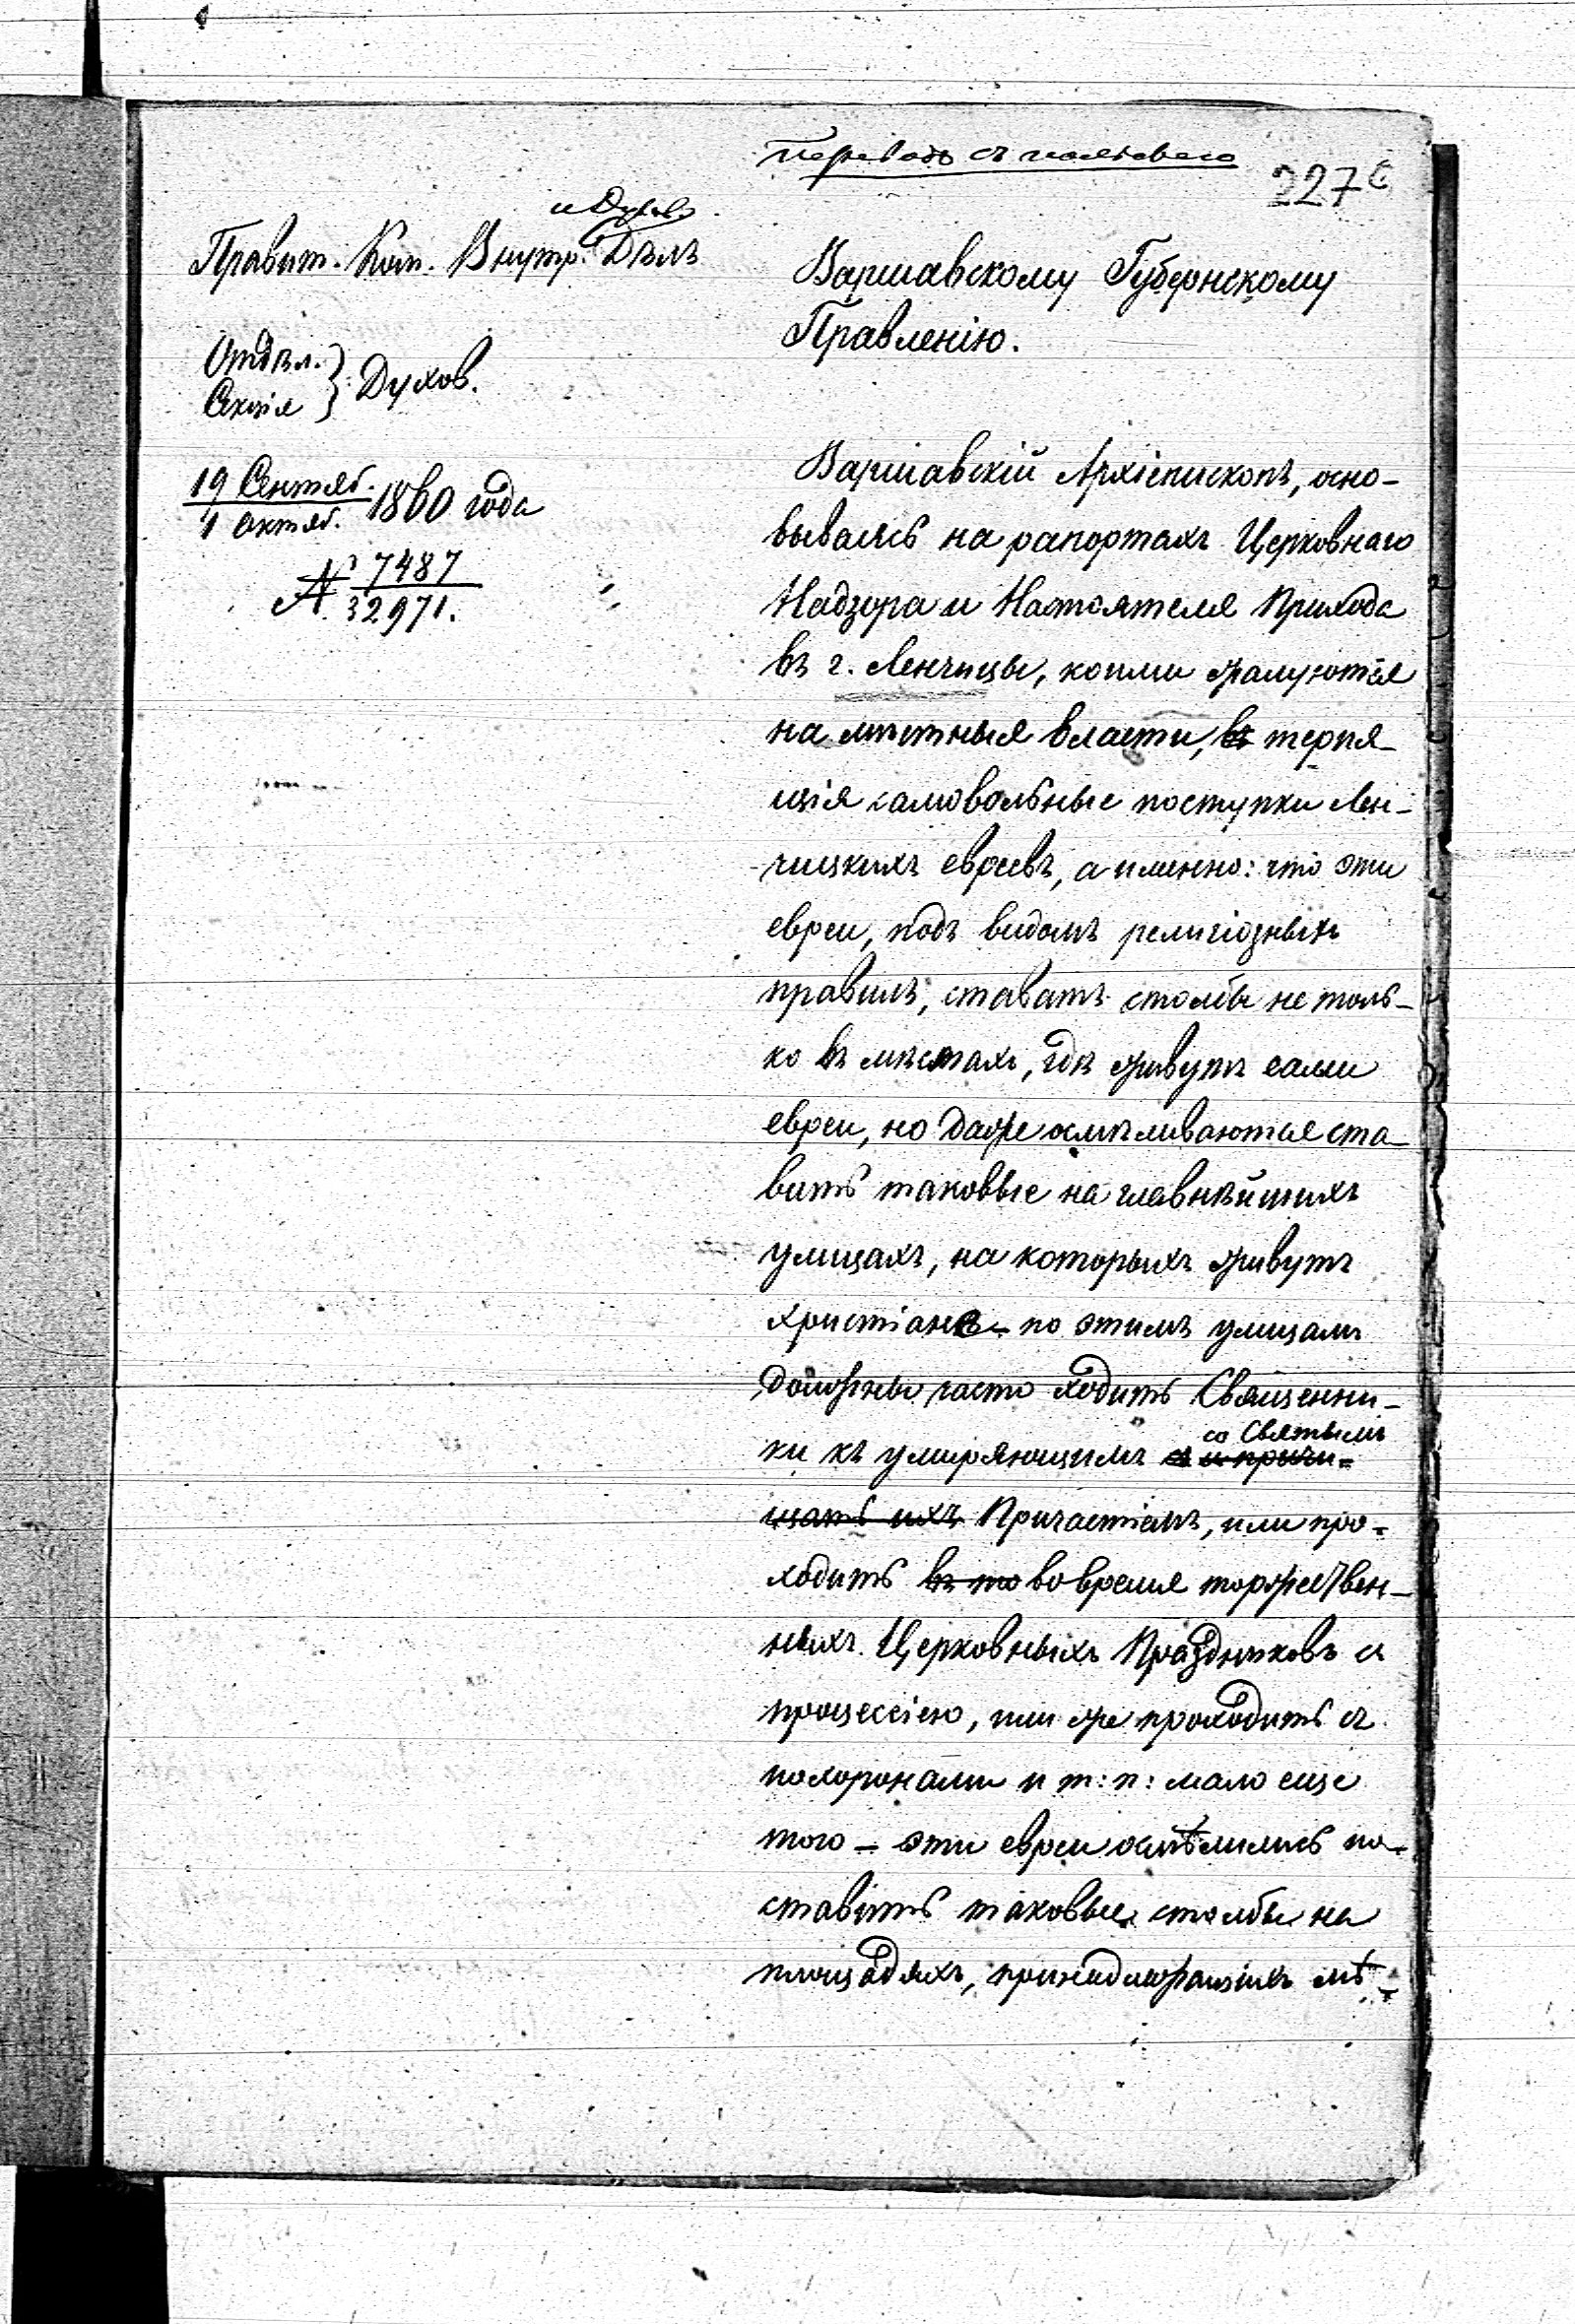 Переводъ съ польскаго
227
и Духов.
Правит. Ком. Внутр. Дѣлъ
Отдѣл.
Секція } Духов.
19 Сентяб.
1 Октяб. 1860 года
№ 7487
32971.
Варшавскому Губернскому
Правленію.
Варшавскій Архіепископъ, осно-
вываясь на рапортахъ Церковнаго
Надзора и Настоятеля Прихода
въ г. Ленчицы, коими жалуются
на мѣстныя власти, въ терпя-
щія самовольные поступки Лен-
чицкихъ евреевъ, а именно: что эти
евреи, подъ видомъ религіозныхъ
правилъ, ставатъ столбы не толь-
ко въ мѣстахъ, гдѣ живутъ сами
евреи, но даже осмѣливаются ста-
вить таковые на главнѣйшихъ
улицахъ, на которыхъ живутъ
христіане - по этимъ улицамъ
должны часто ходить Священни-
со Святымъ
ки къ умирающимъ и причи-
щать ихъ Причастіемъ, или про-
ходить въ то во время торжествен-
ныхъ Церковныхъ Праздниковъ съ
процессіею, или же проходить съ
похоронами и т: п: мало еще
того - эти евреи осмѣлились по-
ставить таковые столбы на
площадяхъ, принадлежащихъ мѣ-